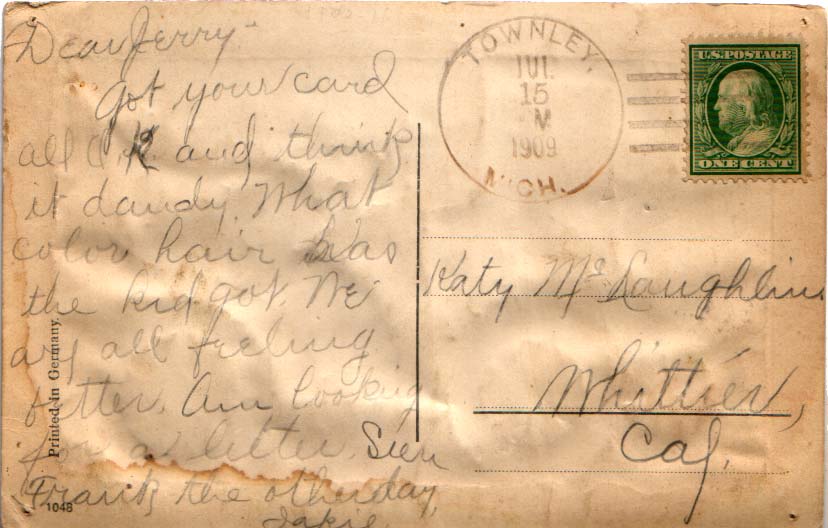 Dear Jerry-
Got your card
all O.K and think
it dandy. What
color hair has
the kid got. We
are all feeling
better. Am looking
for a letter. Seen
Frank the other day,
Jakie
Printed in Germany.
1048
TOWNLEY,
JUL
15
M
1909
MICH.
U.S. POSTAGE
ONE CENT
Katy McLaughlin
Whittier,
Cal.